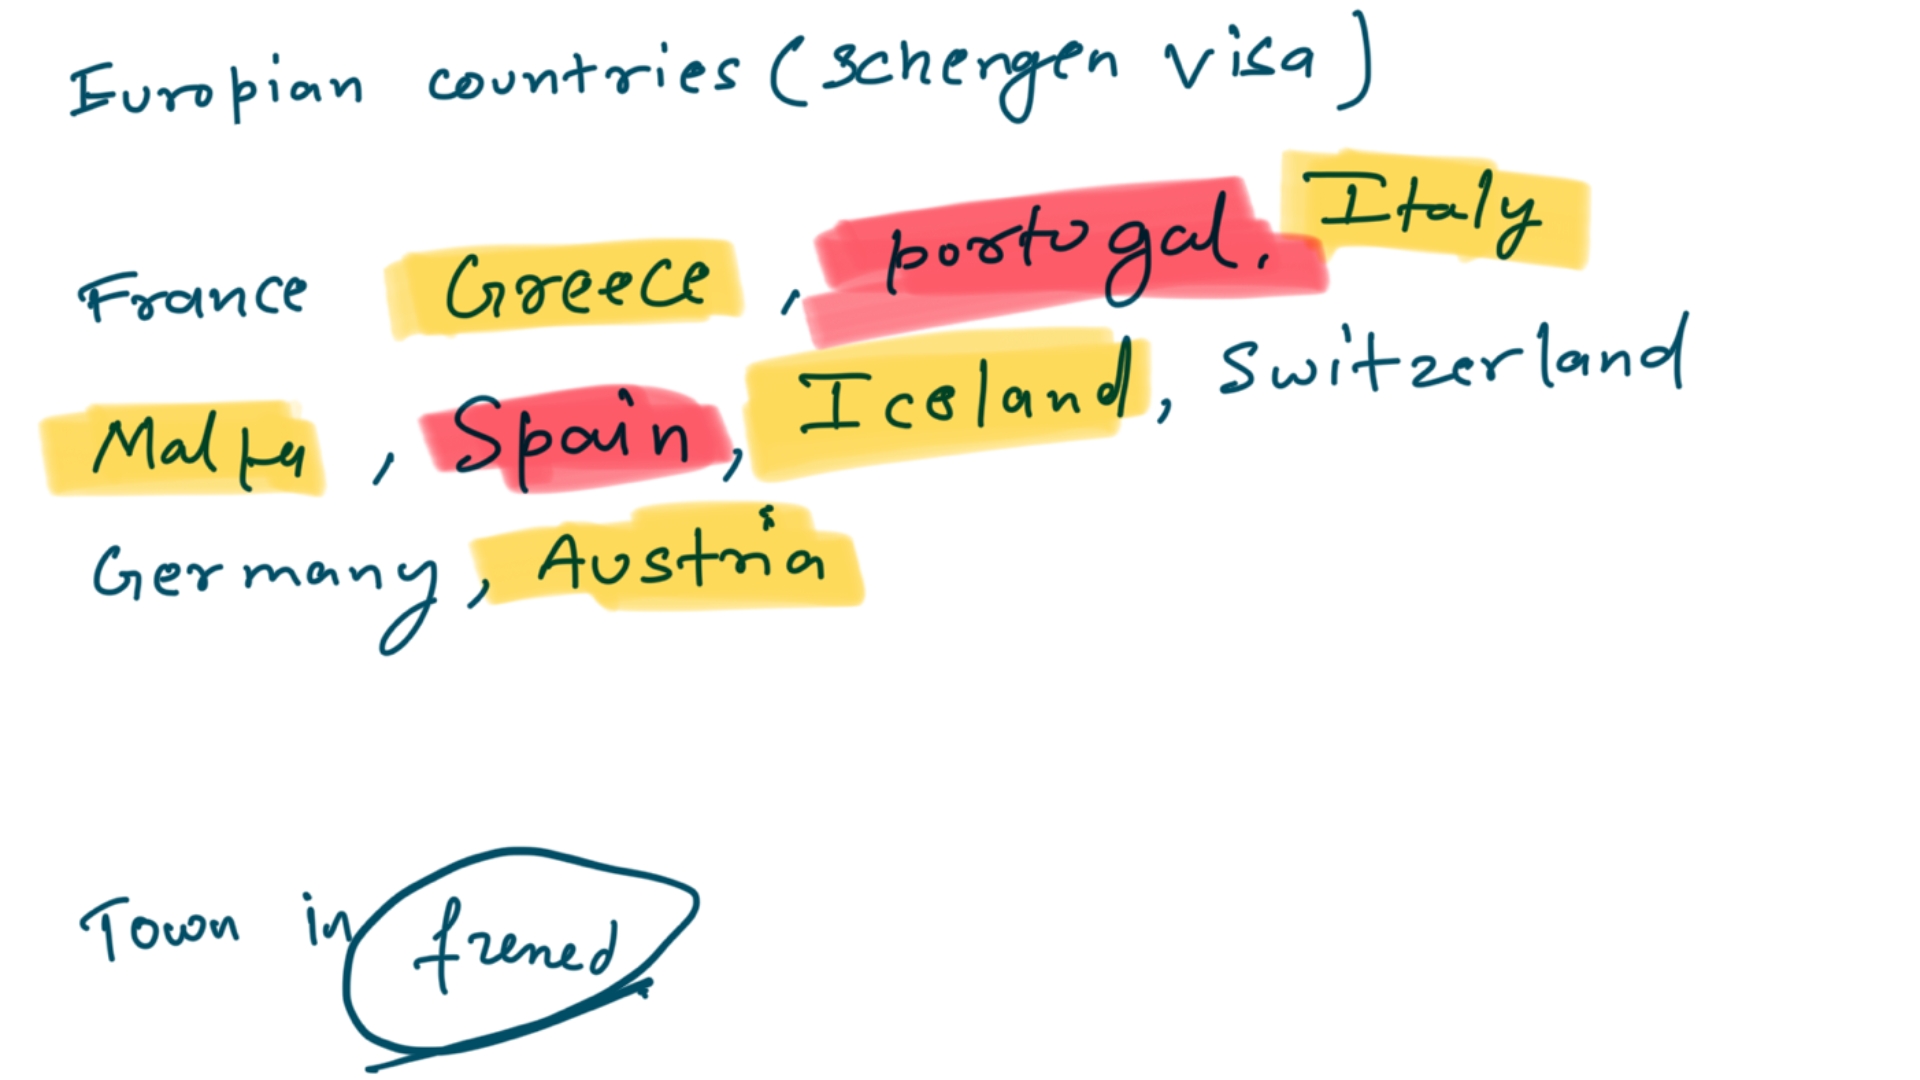 Europian countries (schengen visa)
France Greece, portogal. Italy
Malta, Spain, Iceland, Switzerland
Germany, Austria
Town in frened